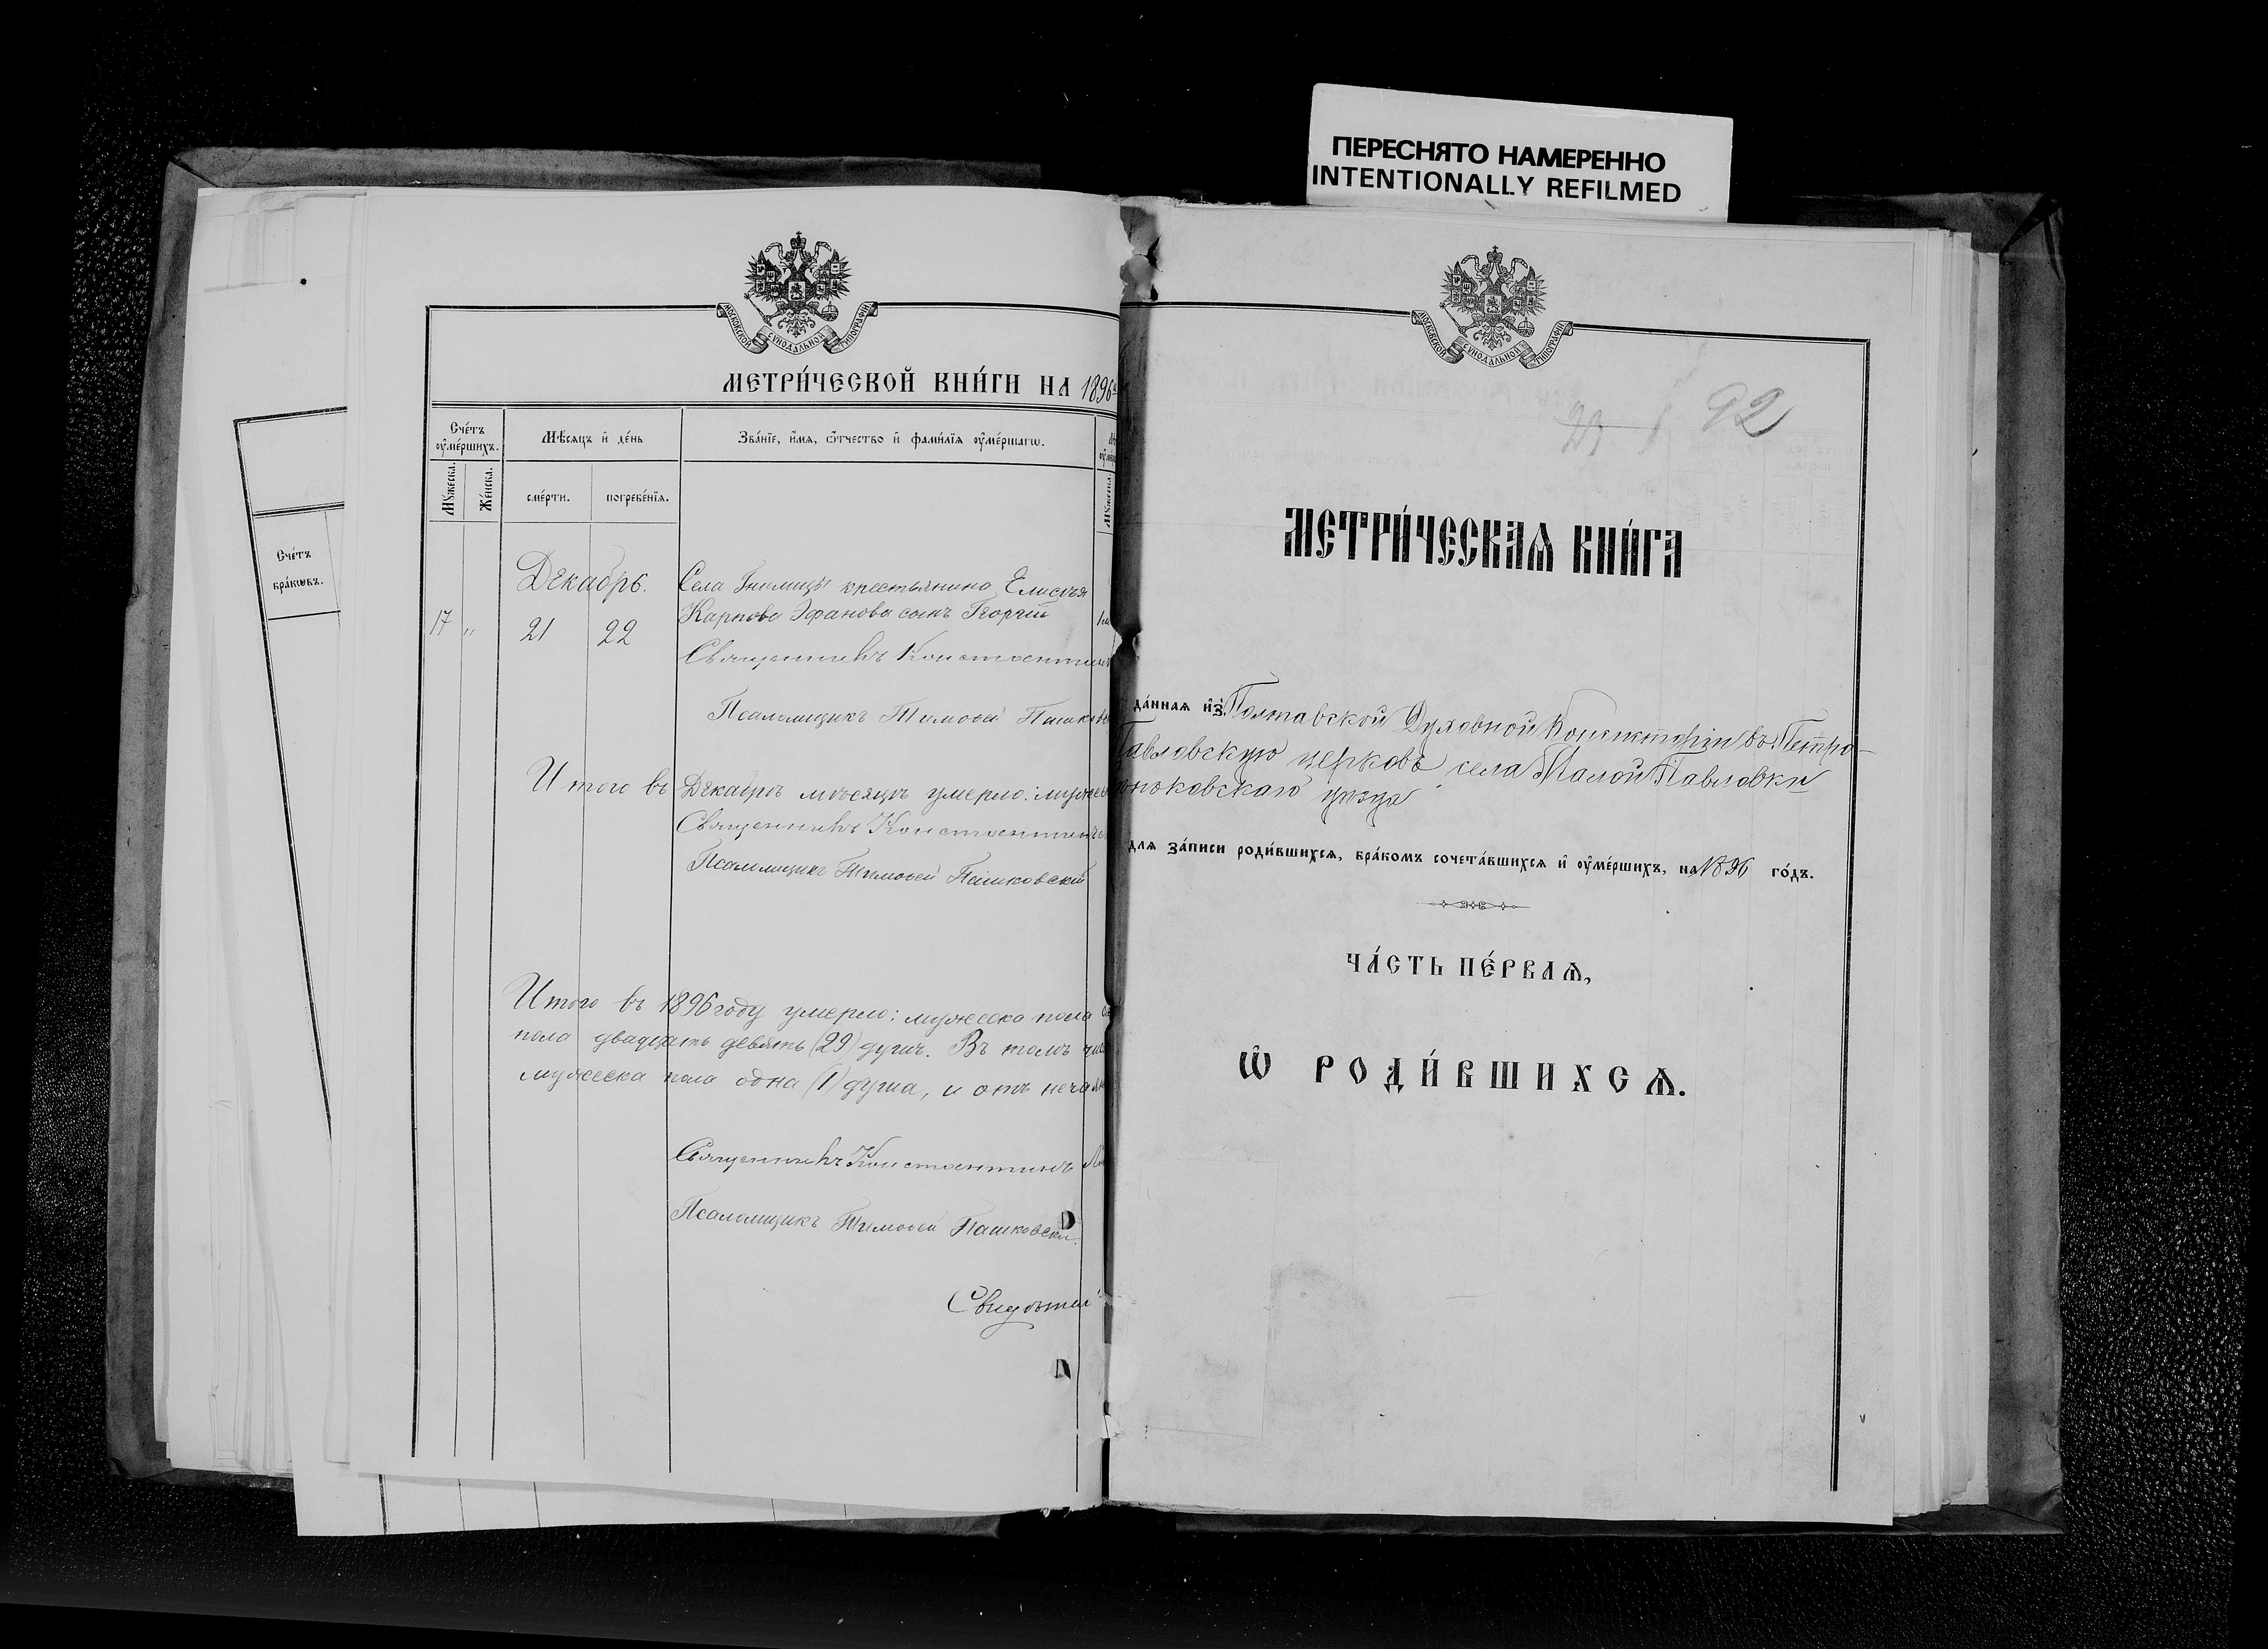 ПЕРЕСНЯТО НАМЕРЕННО
INTENTIONALLY REFILMED
МОСКОВСКОЙ СѴНОДАЛЬНОЙ ТИПОГРАФІИ
МЕТРИ́ЧЕСКОЙ КНИ́ГИ НА 1896
Сче́тъ
ᲂу҆ме́ршихъ.
Мꙋ́жеска.
Же́нска.
Мѣ́сяцъ и҆ де́нь
сме́рти.
погребе́нїѧ.
Зва́нїе, и҆́мѧ, ѻ҆́тчество и҆ фами́лїѧ ᲂу҆ме́ршагѡ.
Сче́тъ
бра́кѡвъ.
Декабрь.
17 " 21 22
Села крестьянина Елисѣя
Карпова сынъ Георгій
Священникъ Константинъ
Псаломщикъ Тимоѳей
Итого въ Декабрѣ мѣсяцѣ умерло:
Священникъ Константинъ
Псаломщикъ Тимоѳей Пашковскій
Итого въ 1896 году умерло: мужеска пола
пола двадцать девять (29) душъ. Въ томъ
мужеска пола одна (1) душа, и отъ
Священникъ Константинъ
Псаломщикъ Тимоѳей Пашковскій
МОСКОВСКОЙ СѴНОДАЛЬНОЙ ТИПОГРАФІИ
92
МЕТРИ́ЧЕСКАѦ КНИ́ГА
да́ннаѧ и҆зъ Полтавской Духовной Консисторіи въ Петро-
Павловскую церковь села Малой Павловки
уѣзда
длѧ за́писи роди́вшихсѧ, бра́комъ сочета́вшихсѧ и҆ ᲂу҆ме́ршихъ, на 1896 го́дъ.
ЧА́СТЬ ПЕ́РВАѦ,
Ѽ РОДИ́ВШИХСѦ.